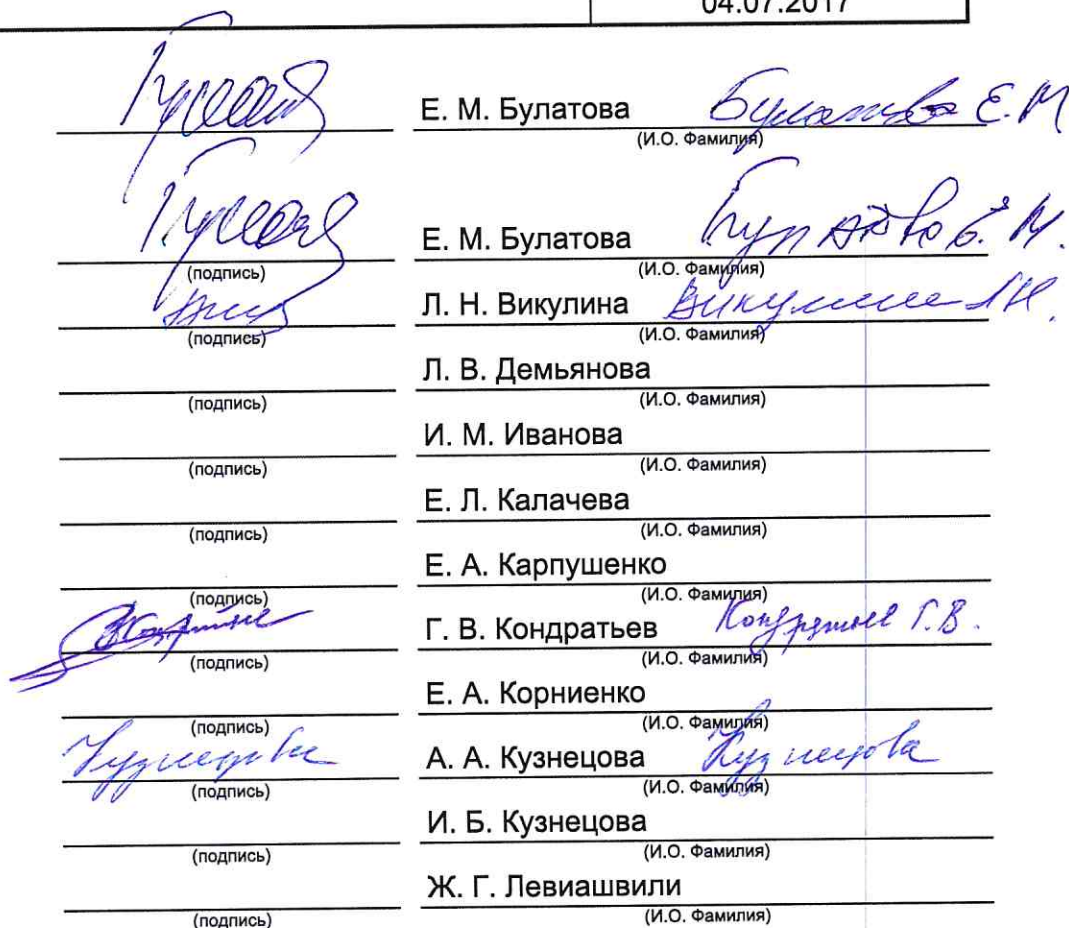 04.07.2017
Е. М. Булатова Булатова Е.М
(И.О. Фамилия)
Е. М. Булатова
(подпись) (И.О. Фамилия)
Л. Н. Викулина Викулина Л.Н.
(подпись) (И.О. Фамилия)
Л. В. Демьянова
(подпись) (И.О. Фамилия)
И. М. Иванова
(подпись) (И.О. Фамилия)
Е. Л. Калачева
(подпись) (И.О. Фамилия)
Е. А. Карпушенко
(подпись) (И.О. Фамилия)
Г. В. Кондратьев Кондратьев Г.В.
(подпись) (И.О. Фамилия)
Е. А. Корниенко
(подпись) (И.О. Фамилия)
Кузнецова А. А. Кузнецова Кузнецова
(подпись) (И.О. Фамилия)
И. Б. Кузнецова
(подпись) (И.О. Фамилия)
Ж. Г. Левиашвили
(подпись) (И.О. Фамилия)